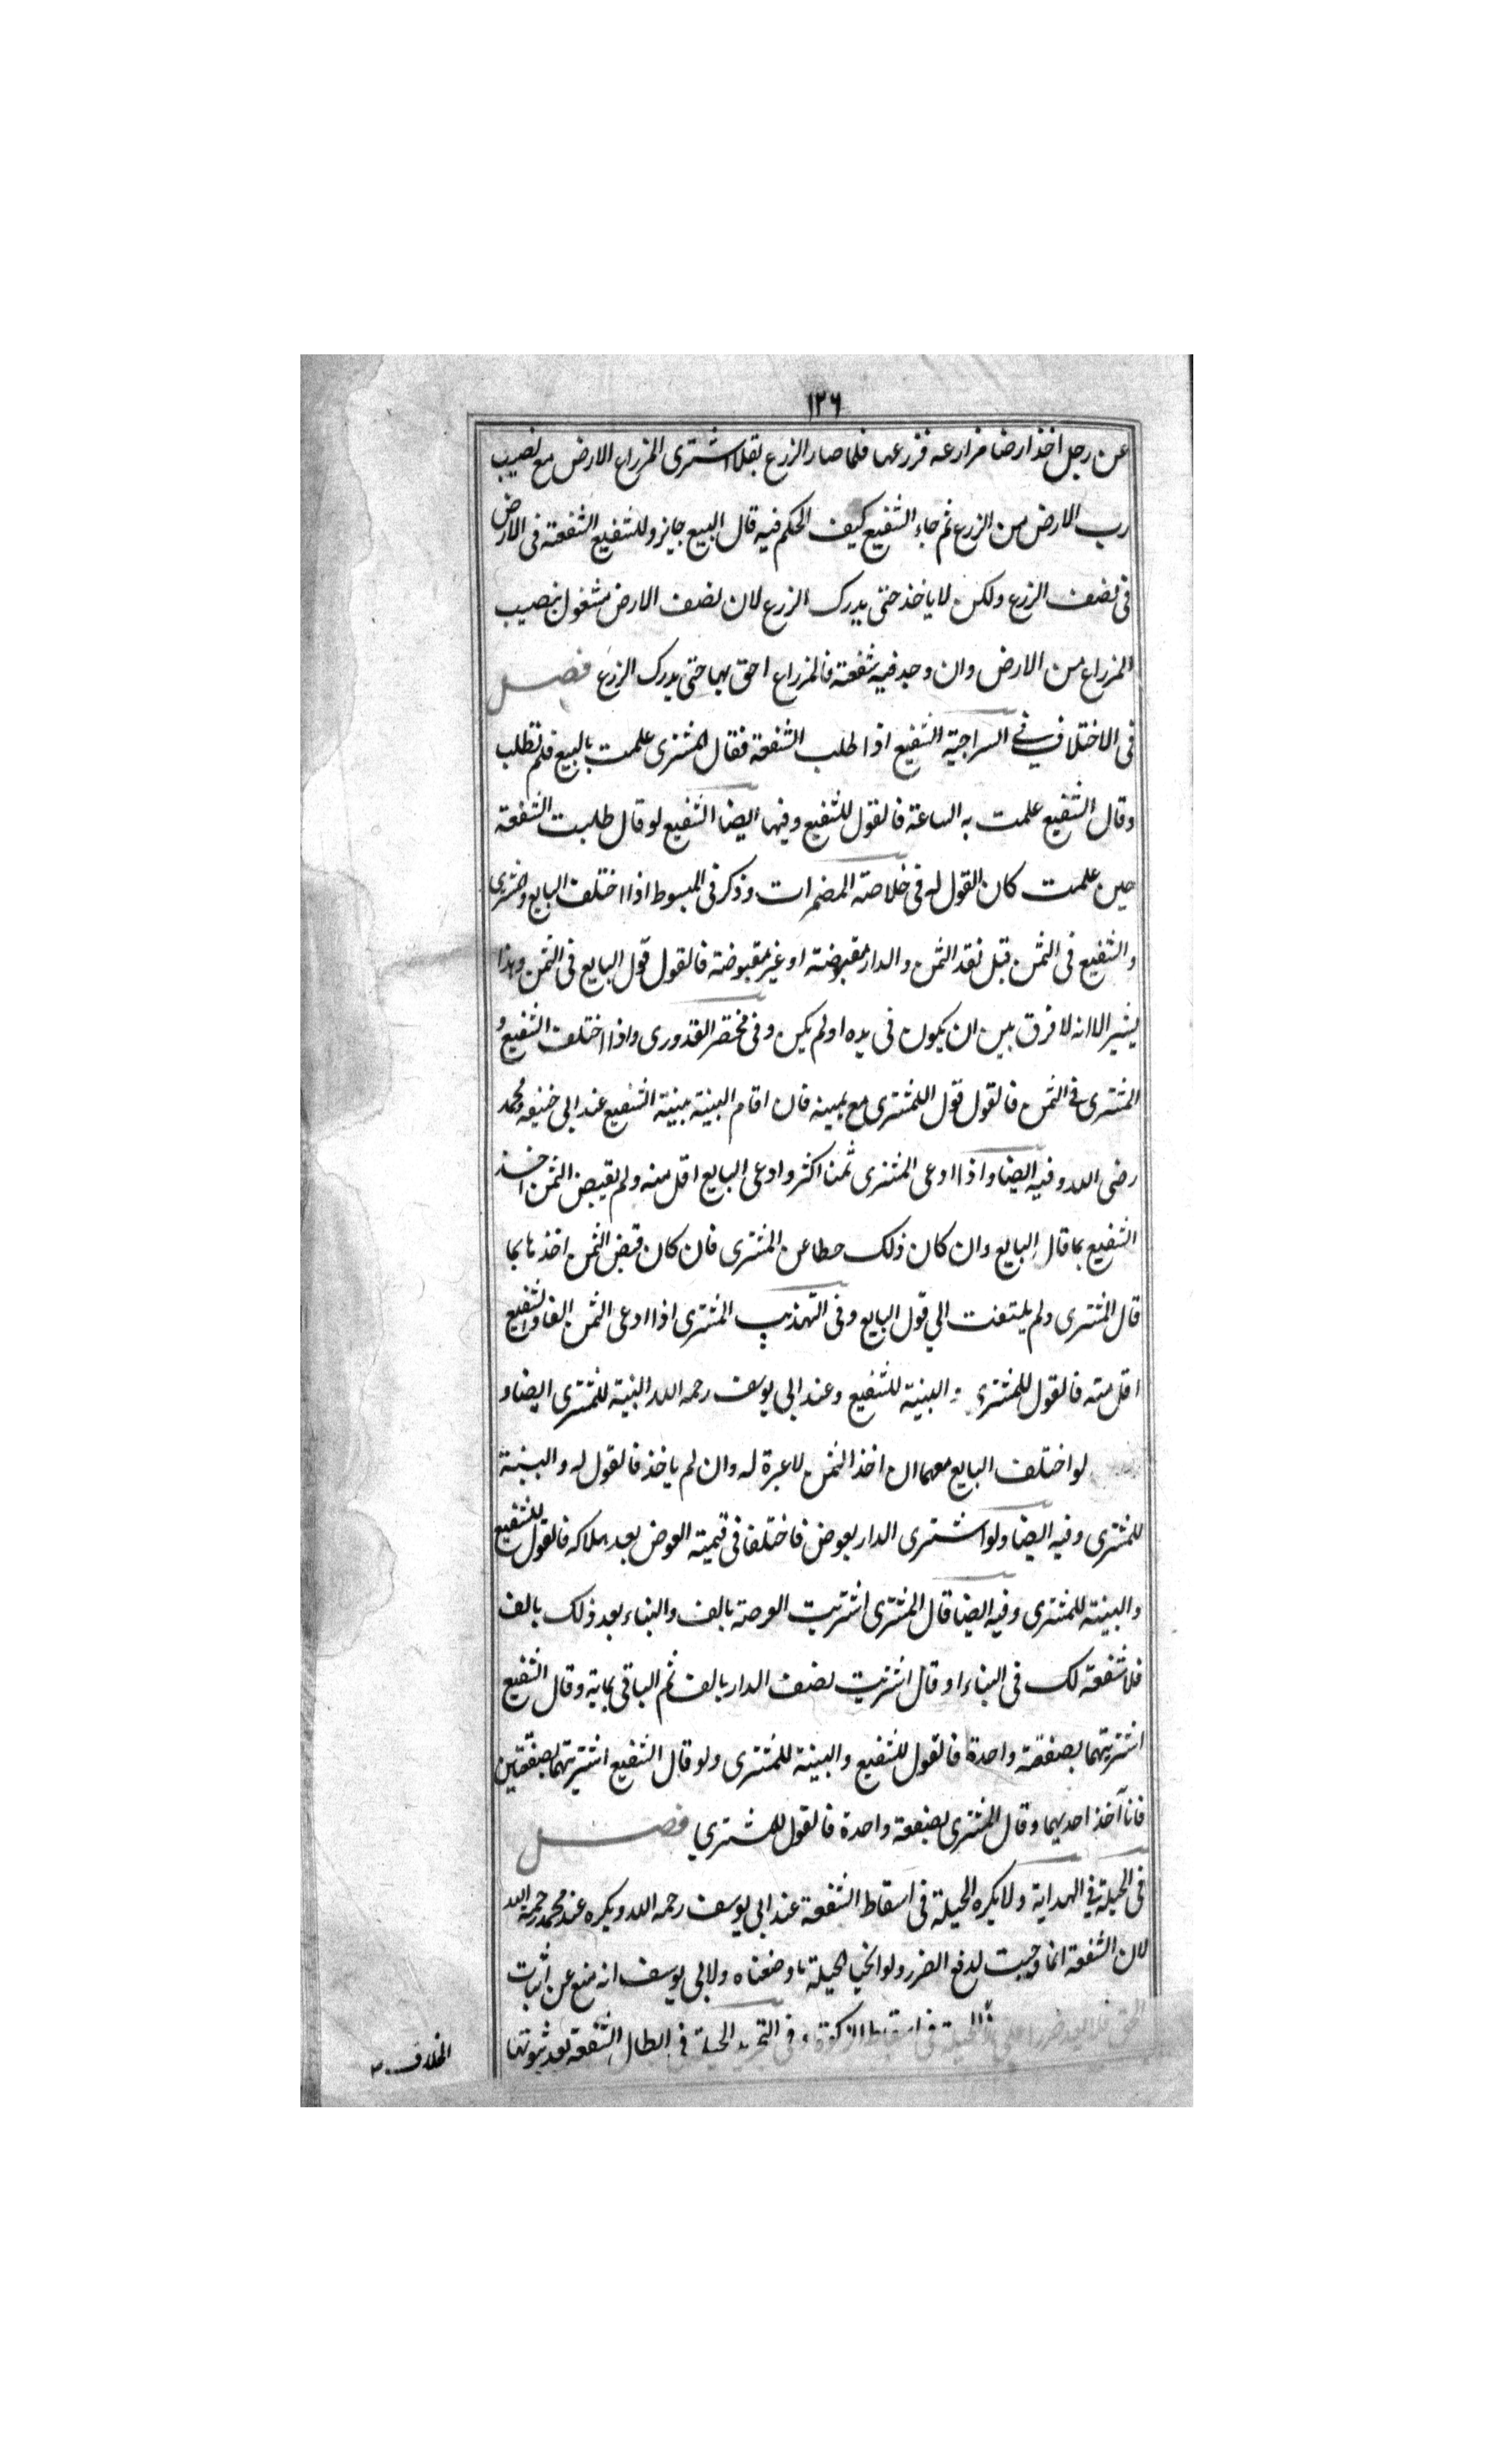 ١٢٦
عن رجل اخذ ارضا مزارعه فزرعها فلما صار الزرع بقلا اشترى المزراع الارض مع نصيب
رب الارض من الزرع ثم جاء الشفيع كيف الحكم فيه قال البيع جايز وللشفيع الشفعة فى الارض
فى نصف الزرع ولكن لا ياخذ حتى يدرك الزرع لان نصف الارض مشغول بنصيب
المزراع من الارض وان وجد فيه شفعة فالمزراع احق بها حتى يدرك الزرع فصل
فى الاختلاف فى السراجية الشفيع اذا طلب الشفعة فقال المشترى علمت بالبيع فلم تطلب
وقال الشفيع علمت به الساعة فالقول للشفيع وفيها ايضا الشفيع لو قال طلبت الشفعة
حين علمت كان القول له فى خلاصة المضمرات وذكر فى المبسوط اذا اختلف البايع والمشترى
والشفيع فى الثمن قبل نقد الثمن والدار مقبوضة او غير مقبوضة فالقول قول البايع فى الثمن وهذا
يشير الا انه لا فرق بين ان يكون فى يده او لم يكن وفى مختصر القدورى واذا اختلف الشفيع و
المشترى فى الثمن فالقول قول اللمشترى مع يمينه فان اقام البينة بينة الشفيع عند ابى حنيفه ومحمد
رضى الله وفيه ايضا واذا ادعى المشترى ثمنا اكثر وادعى البايع اقل منه ولم يقبض الثمن اخذ
الشفيع بما قال البايع وان كان ذلك حطا عن المشترى فان كان قبض الثمن اخذها بما
قال المشترى ولم يلتفت الى قول البايع وفى التهذيب المشترى اذا ادعى الثمن الفا والشفيع
اقل منه فالقول للمشترى و البينة للشفيع وعند ابى يوسف رحمه الله البينة للمشترى ايضا و
لو اختلف البايع معهما ان اخذ الثمن لا عبرة له وان لم ياخذ فالقول له والبينة
للمشترى وفيه ايضا ولو اشترى الدار بعوض فاختلفا فى قيمته العوض بعد هلاكه فالقول للشفيع
والبينة للمشترى وفيه ايضا قال المشترى اشتريت العرصة بالف والبناء بعد ذلك بالف
فلا شفعة لك فى البناء او قال اشتريت نصف الدار بالف ثم الباقى بماية وقال الشفيع
اشتريتهما بصفقة واحدة فالقول للشفيع والبينة للمشترى ولو قال الشفيع اشتريتهما بصفقتين
فانا آخذ احديهما وقال المشترى بصفقة واحدة فالقول للمشتري فصل
فى الحيلة فى الهداية ولا يكره الحيلة فى اسقاط الشفعة عند ابى يوسف رحمه الله ويكره عند محمد رحمه الله
لان الشفعة انما وجبت لدفع الضرر ولو الحيلة ما وضعناه ولابى يوسف انه منع عن اثبات
الحق فلا يعد ضررا الحيلة فى اسقاط الزكوة وفى التجريد الحيلة فى ابطال الشفعة بعد ثبوتها
الخلاف